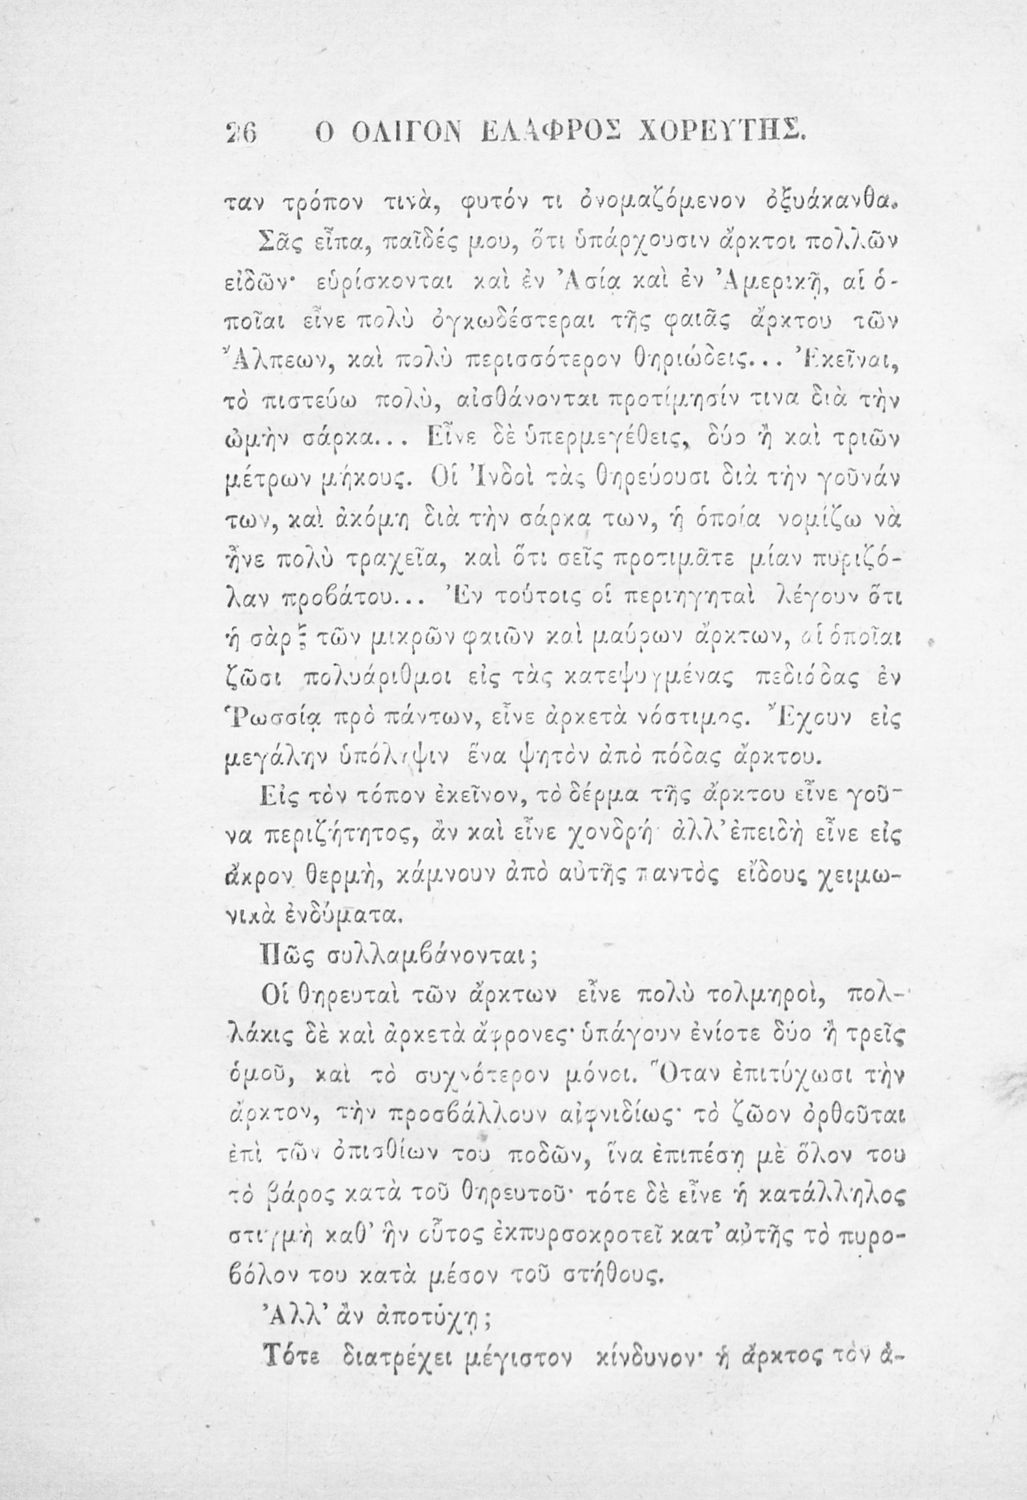 26 Ο ΟΛΙΓΟΝ ΕΛΑΦΡΟΣ ΧΟΡΕΥΤΗΣ.
ταν τρόπον τινὰ, φυτόν τι ὀνομαζόμενον ὀξυάκανθα.
Σᾶς εἶπα, παῖδές μου, ὅτι ὑπάρχουσιν ἄρκτοι πολλῶν
εἰδῶν· εὑρίσκονται καὶ ἐν Ἀσίᾳ καὶ ἐν Ἀμερικῇ, αἱ ὁ-
ποῖαι εἶνε πολὺ ὀγκωδέστεραι τῆς φαιᾶς ἄρκτου τῶν
Ἄλπεων, καὶ πολὺ περισσότερον θηριώδεις... Ἐκεῖναι,
τὸ πιστεύω πολὺ, αἰσθάνονται προτίμησίν τινα διὰ τὴν
ὠμὴν σάρκα... Εἶνε δὲ ὑπερμεγέθεις, δύο ἢ καὶ τριῶν
μέτρων μήκους. Οἱ Ἰνδοὶ τὰς θηρεύουσι διὰ τὴν γοῦνάν
των, καὶ ἀκόμη διὰ τὴν σάρκα των, ἡ ὁποία νομίζω νὰ
ἦνε πολὺ τραχεῖα, καὶ ὅτι σεῖς προτιμᾶτε μίαν πυριζό-
λαν προβάτου... Ἐν τούτοις οἱ περιηγηταὶ λέγουν ὅτι
ἡ σὰρξ τῶν μικρῶν φαιῶν καὶ μαύρων ἄρκτων, αἱ ὁποῖαι
ζῶσι πολυάριθμοι εἰς τὰς κατεψυγμένας πεδιάδας ἐν
Ῥωσσίᾳ πρὸ πάντων, εἶνε ἀρκετὰ νόστιμος. Ἔχουν εἰς
μεγάλην ὑπόληψιν ἕνα ψητὸν ἀπὸ πόδας ἄρκτου.
Εἰς τὸν τόπον ἐκεῖνον, τὸ δέρμα τῆς ἄρκτου εἶνε γοῦ-
να περιζήτητος, ἂν καὶ εἶνε χονδρή· ἀλλ' ἐπειδὴ εἶνε εἰς
ἄκρον θερμὴ, κάμνουν ἀπὸ αὐτῆς παντὸς εἴδους χειμω-
νικὰ ἐνδύματα.
Πῶς συλλαμβάνονται;
Οἱ θηρευταὶ τῶν ἄρκτων εἶνε πολὺ τολμηροὶ, πολ-
λάκις δὲ καὶ ἀρκετὰ ἄφρονες· ὑπάγουν ἐνίοτε δύο ἢ τρεῖς
ὁμοῦ, καὶ τὸ συχνότερον μόνοι. Ὅταν ἐπιτύχωσι τὴν
ἄρκτον, τὴν προσβάλλουν αἰφνιδίως· τὸ ζῶον ὀρθοῦται
ἐπὶ τῶν ὀπισθίων του ποδῶν, ἵνα ἐπιπέσῃ μὲ ὅλον του
τὸ βάρος κατὰ τοῦ θηρευτοῦ· τότε δὲ εἶνε ἡ κατάλληλος
στιγμὴ καθ' ἣν οὗτος ἐκπυρσοκροτεῖ κατ' αὐτῆς τὸ πυρο-
βόλον του κατὰ μέσον τοῦ στήθους.
Ἀλλ' ἂν ἀποτύχῃ;
Τότε διατρέχει μέγιστον κίνδυνον· ἡ ἄρκτος τὸν ἁ-